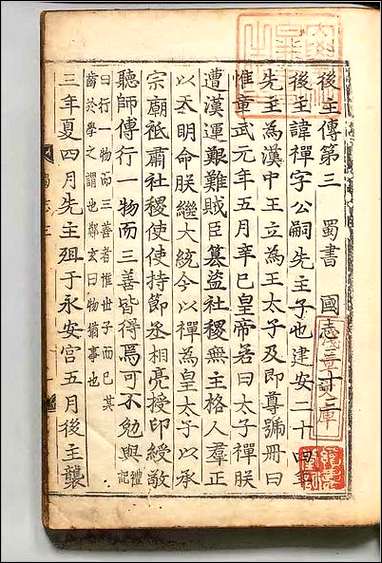 後主傳第三 蜀書 國志三十三
後主諱禪字公嗣先主子也建安二十四年
先主為漢中王立為王太子及即尊號冊曰
惟章武元年五月辛巳皇帝若曰太子禪朕
遭漢運艱難賊臣篡盜社稷無主格人羣正
以天明命朕繼大統今以禪為皇太子以承
宗廟祗肅社稷使使持節丞相亮授印綬敬
聽師傅行一物而三善皆得焉可不勉與禮記
曰行一物而三善者惟世子而已其
齒於學之謂也鄭玄曰物猶事也
三年夏四月先主殂于永安宮五月後主襲